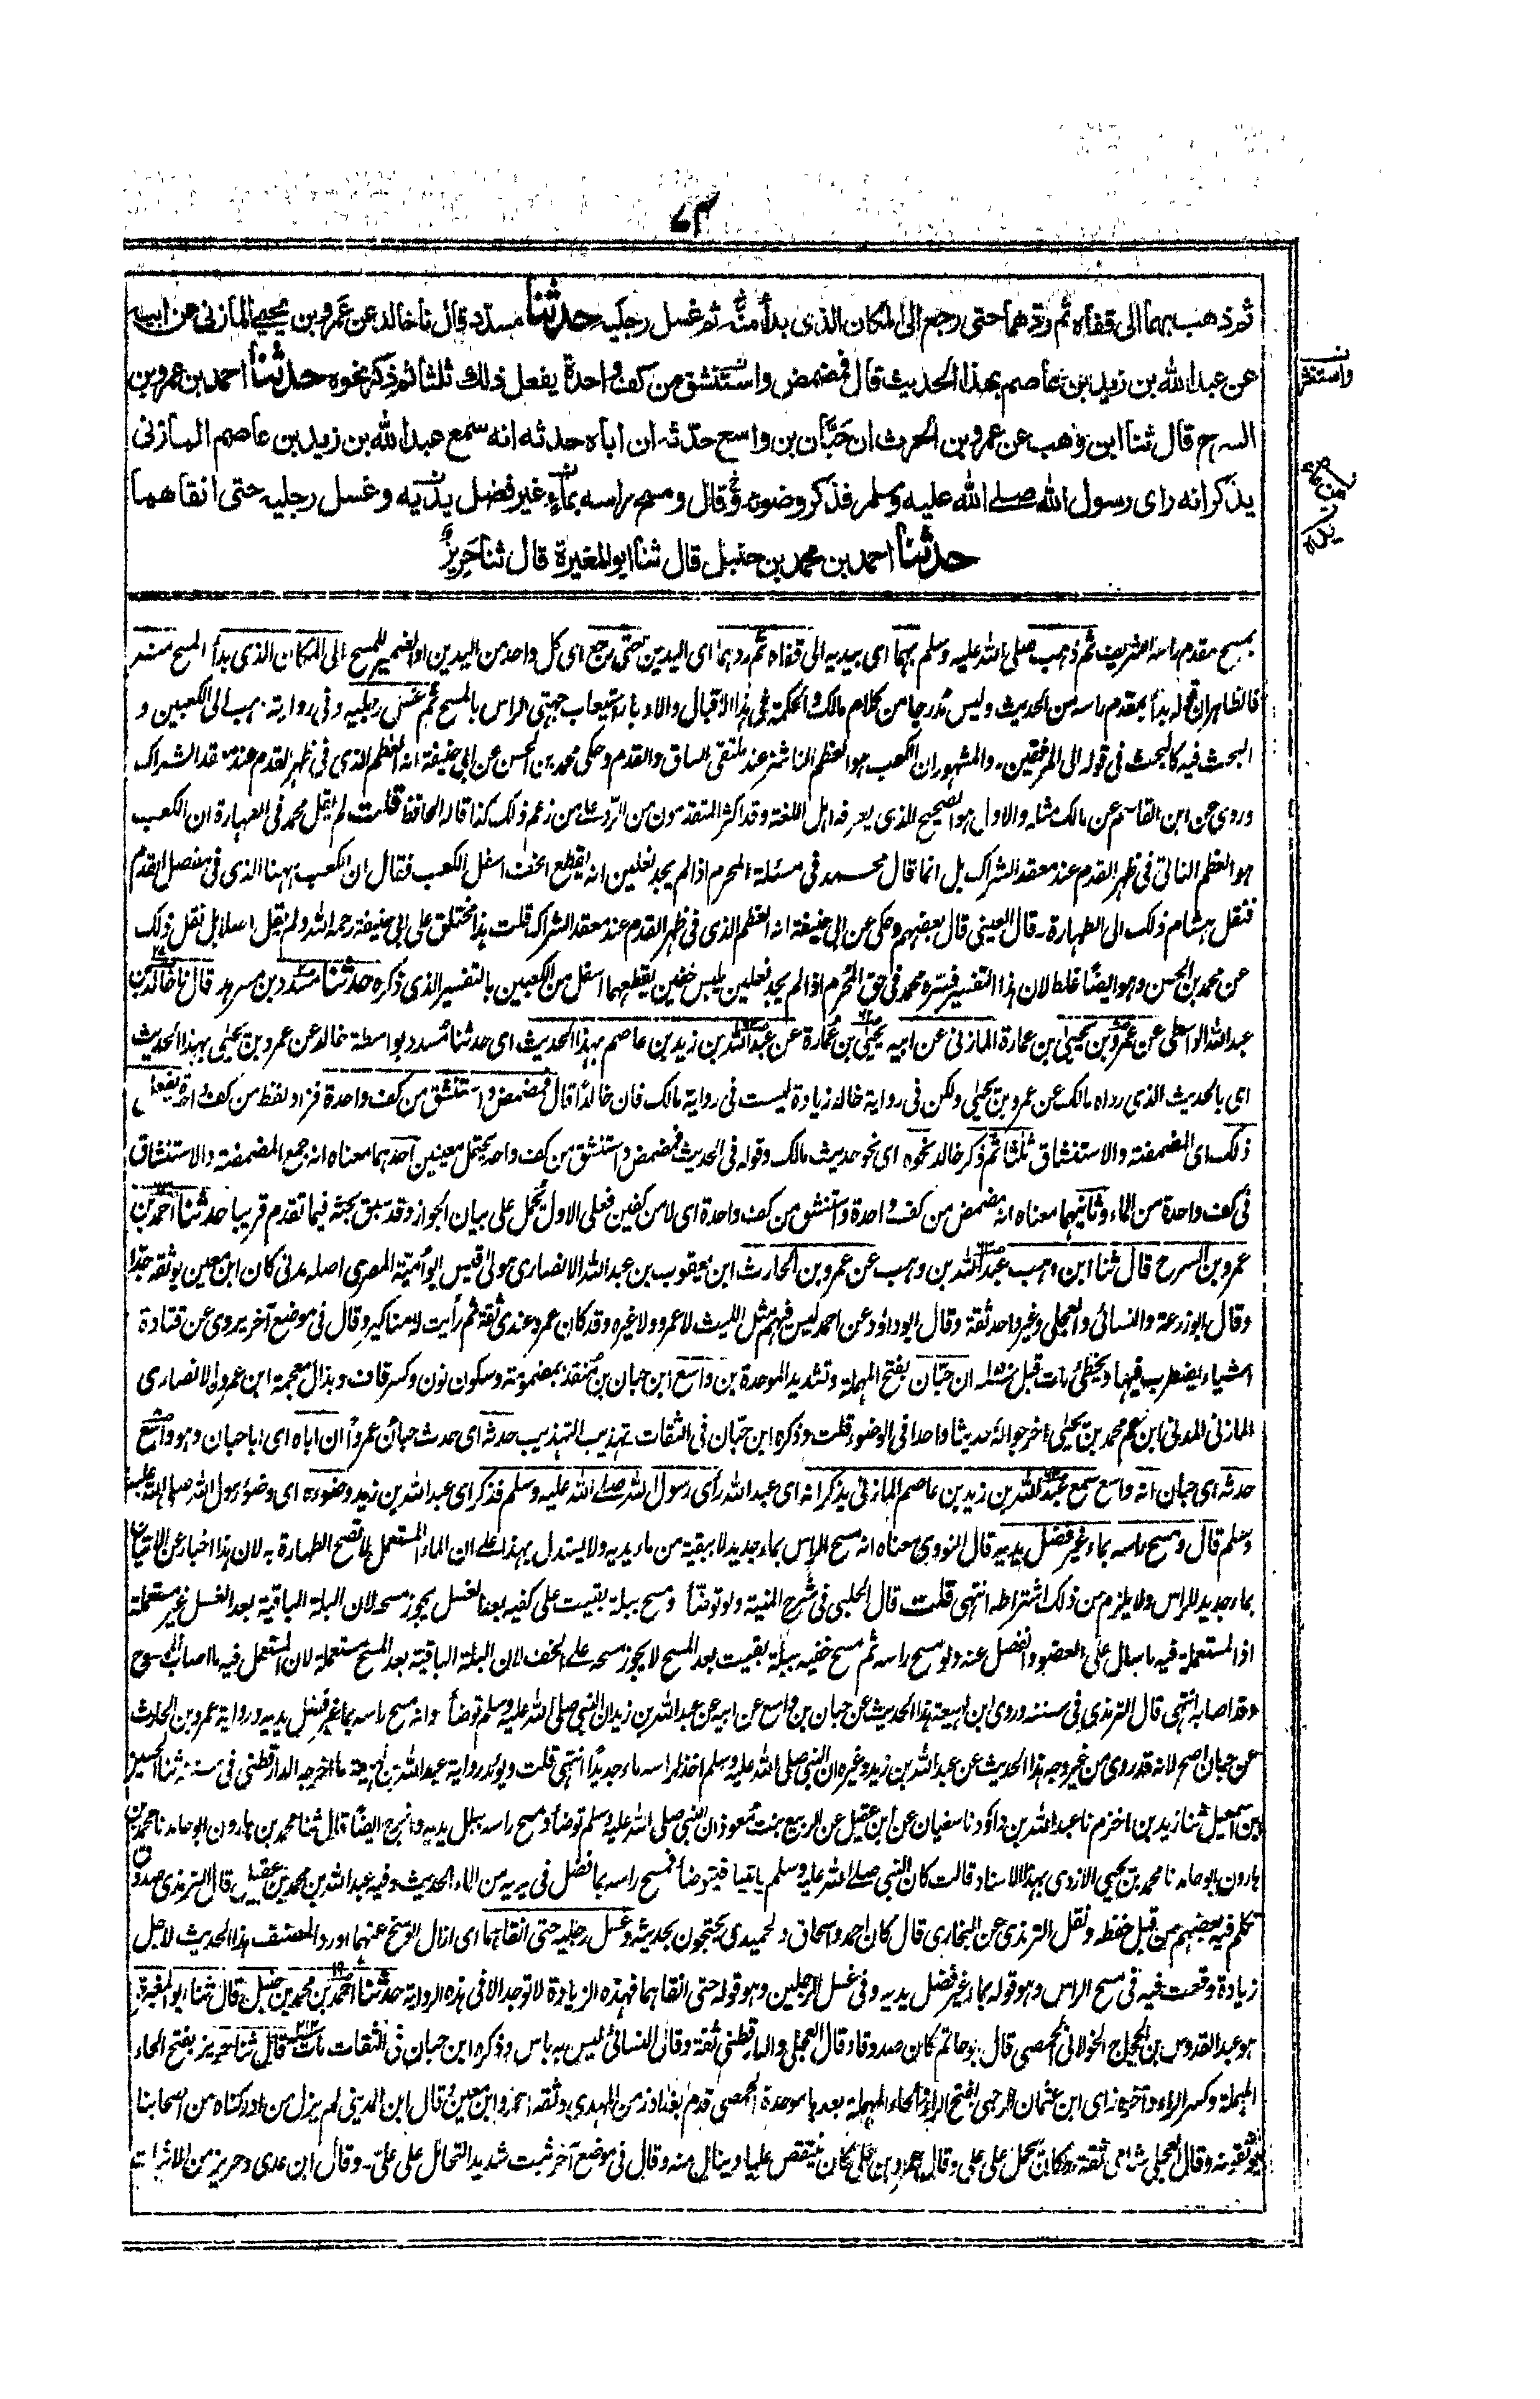 ٧٣
ثم ذهب بهما الى قفاه ثم ردهما حتى رجع الى المكان الذى بدأ منه ثم غسل رجليه حدثنا مسدد قال نا خالد عن عمرو بن يحيى المازنى عن ابيه
عن عبد الله بن زيد بن عاصم بهذا الحديث قال فمضمض واستنشق من كف واحدة يفعل ذلك ثلثا ثم ذكر نحوه حدثنا احمد بن عمرو بن
السرح قال ثنا ابن وهب عن عمرو بن الحرث ان حبّان بن واسع حدثه ان اباه حدثه انه سمع عبد الله بن زيد بن عاصم المازنى
يذكر انه راى رسول الله صلے الله عليه وسلم فذكر وضوءه وقال ومسح راسه بماء غير فضل يديه وغسل رجليه حتى انقاهما
حدثنا احمد بن محمد بن حنبل قال ثنا ابو المغيرة قال ثنا حريز
واستنثر
يمسح مقدم راسه الشريف ثم ذهب صلى الله عليه وسلم بهما اى بيديه الى قفاه ثم ردهما اى اليدين حتى رجع اى كل واحد من اليدين او الضمير للمسح الى المكان الذى بدأ المسح منه
فالظاهر ان قوله بدأ بمقدم راسه من الحديث وليس مدرجا من كلام مالك والحكمة فى هذا الاقبال والادبار استيعاب جهتى الراس بالمسح ثم غسل رجليه وفى رواية وهيب الى الكعبين و
البحث فيه كالبحث فى قوله الى المرفقين۔ والمشهور ان الكعب هو العظم الناشز عند ملتقى الساق والقدم وحكى محمد بن الحسن عن ابى حنيفة انه العظم الذى فى ظهر القدم عند معقد الشراك
وروى عن ابن القاسم عن مالك مثله والاول هو الصحيح الذى يعرفه اهل اللغة وقد اكثر المتقدمون من الرد على من زعم ذلك كذا قاله الحافظ قلت لم يقل محمد فى الطهارة ان الكعب
هو العظم الناتى فى ظهر القدم عند معقد الشراك بل انما قال محمد فى مسئلة المحرم اذا لم يجد نعلين انه يقطع الخف اسفل الكعب فقال ان الكعب ههنا الذى فى مفصل القدم
فنقل هشام ذلك الى الطهارة۔ قال العينى قال بعضهم وحكى عن ابى حنيفة انه العظم الذى فى ظهر القدم عند معقد الشراك قلت هذا مختلق على ابى حنيفة رحمه الله ولم يقل اصلا بل نقل ذلك
عن محمد بن الحسن وهو ايضًا غلط لان هذا التفسير فسره محمد فى حق المحرم اذا لم يجد نعلين يلبس خفين يقطعهما اسفل من الكعبين بالتفسير الذى ذكره حدثنا مسدد بن مسرهد قال نا خالد بن
عبد الله الواسطى عن عمرو بن يحيى بن عمارة المازنى عن ابيه يحيى بن عمارة عن عبد الله بن زيد بن عاصم بهذا الحديث اى حدثنا مسدد بواسطة خالد عن عمرو بن يحيى بهذا الحديث
اى بالحديث الذى رواه مالك عن عمرو بن يحيى ولكن فى رواية خالد زيادة ليست فى رواية مالك فان خالدًا قال فمضمض واستنشق من كف واحدة فزاد لفظ من كف واحدة يفعل
ذلك اى المضمضة والاستنشاق ثلثا ثم ذكر خالد نحوه اى نحو حديث مالك وقوله فى الحديث فمضمض واستنشق من كف واحد يحتمل معنيين احدهما معناه انه جمع المضمضة والاستنشاق
فى كف واحدة من الماء وثانيهما معناه انه مضمض من كف واحدة واستنشق من كف واحدة اى لا من كفين فعلى الاول يحمل على بيان الجواز وقد سبق بحثه فيما تقدم قريبا حدثنا احمد بن
عمرو بن السرح قال ثنا ابن وهب عبد الله بن وهب عن عمرو بن الحارث ابن يعقوب بن عبد الله الانصارى مولى قيس ابو امية المصرى اصله مدنى كان ابن معين يوثقه جدا
وقال ابو زرعة والنسائى والعجلى وغير واحد ثقة وقال ابو داؤد عن احمد ليس فيهم مثل الليث لا عمرو ولا غيره وقد كان عمرو عندى ثقة ثم رأيت له مناكير وقال فى موضع آخر يروى عن قتادة
اشياء يضطرب فيها ويخطئ مات قبل ان حبّان بفتح المهملة وتشديد الموحدة بن واسع ابن حبان بن منقذ بمضمومة وسكون نون وكسر قاف وبذال معجمة ابن عمرو الانصارى
المازنى المدنى ابن عم محمد بن يحيى اخرجوا له حديثا واحدا فى الوضوء قلت وذكره ابن حبّان فى الثقات تهذيب التهذيب حدثه اى حدث حبان عمروا ان اباه اى ابا حبان وهو واسع
حدثه اى حبان انه واسع سمع عبد الله بن زيد بن عاصم المازنى يذكر انه اى عبد الله رأى رسول الله صلے الله عليه وسلم فذكر اى عبد الله بن زيد وضوءه اى وضوء رسول الله صلى الله عليه
وسلم قال ومسح راسه بماء غير فضل يديه قال النووى معناه انه مسح الراس بماء جديد لا ببقية من ماء يديه ولا يستدل بهذا على ان الماء المستعمل لا تصح الطهارة به لان هذا اخبار عن الاتيان
بماء جديد للراس ولا يلزم من ذلك اشتراطه انتهى قلت قال الحلبى فى شرح المنية ولو توضأ ومسح ببلة بقيت على كفيه بعد الغسل يجوز مسحه لان البلة الباقية بعد الغسل غير مستعملة
اذ المستعملة فيه ما سال على العضو وانفصل عنه ولو مسح راسه ثم مسح خفيه ببلة بقيت بعد المسح لا يجوز مسحه على الخف لان البلة الباقية بعد المسح مستعملة لان المستعمل فيه ما اصاب الممسوح
وقد اصابه انتهى قال الترمذى فى سننه وروى ابن لهيعة هذا الحديث عن حبان بن واسع عن ابيه عن عبد الله بن زيد ان النبى صلى الله عليه وسلم توضأ وانه مسح راسه بما غبر فضل يديه ورواية عمرو بن الحارث
عن حبان اصح لانه قد روى من غير وجه هذا الحديث عن عبد الله بن زيد وغيره ان النبى صلى الله عليه وسلم اخذ لراسه ماء جديدًا انتهى قلت ويؤيد رواية عبد الله بن لهيعة ما اخرجه الدارقطنى فى سننه ثنا الحسين
بن اسمعيل ثنا زيد بن اخزم نا عبد الله بن داؤد نا سفيان عن ابن عقيل عن الربيع بنت معوذ ان النبى صلى الله عليه وسلم توضأ ومسح راسه ببلل يديه واخرج ايضًا قال ثنا محمد بن هارون ابو حامد نا محمد بن
هارون ابو حامد نا محمد بن يحيى الازدى بهذا الاسناد قالت كان النبى صلے الله عليه وسلم ياتينا فيتوضأ فمسح راسه بما فضل فى يديه من الماء الحديث وفيه عبد الله بن محمد بن عقيل قال الترمذى صدوق
تكلم فيه بعضهم من قبل حفظه ونقل الترمذى عن البخارى قال كان احمد واسحاق والحميدى يحتجون بحديثه وغسل رجليه حتى انقاهما اى ازال الوسخ عنهما اورد المصنف هذا الحديث لاجل
زيادة وقعت فيه فى مسح الراس وهو قوله بماء غير فضل يديه وفى غسل الرجلين وهو قوله حتى انقاهما فهذه الزيادة لا توجد الا فى هذه الرواية حدثنا احمد بن محمد بن حنبل قال ثنا ابو المغيرة
هو عبد القدوس بن الحجاج الخولانى الحمصى قال ابو حاتم كان صدوقا وقال العجلى والدارقطنى ثقة وقال النسائى ليس به باس وذكره ابن حبان فى الثقات مات قال ثنا حريز بفتح الحاء
المهملة وكسر الراء وآخره زاى ابن عثمان الرحبى بفتح الراء والحاء المهملة بعدها موحدة الحمصى قدم بغداد زمن المهدى وثقه احمد وابن معين وقال ابن المدينى لم يزل من ادركناه من اصحابنا
يوثقونه وقال العجلى شامى ثقة وكان يحمل على على وقال عمرو بن على كان ينتقص عليا وينال منه وقال فى موضع آخر ثبت شديد التحامل على على۔ وقال ابن عدى وحريز من الاثبات